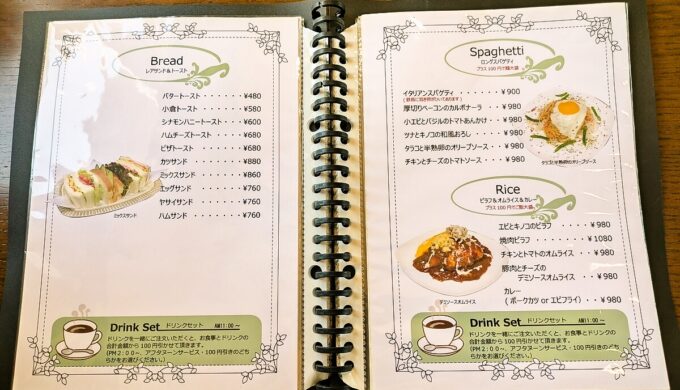 Bread
レアサンド&トースト
バタートースト・・・・・・・¥480
小倉トースト・・・・・・・・¥580
シナモンハニートースト・・・¥600
ハムチーズトースト・・・・・¥680
ピザトースト・・・・・・・・¥680
カツサンド・・・・・・・・・¥880
ミックスサンド・・・・・・・¥860
エッグサンド・・・・・・・・¥760
ヤサイサンド・・・・・・・・¥760
ハムサンド・・・・・・・・・¥760
ミックスサンド
Drink Set ドリンクセット AM11:00~
ドリンクを一緒にご注文いただくと、お食事とドリンクの
合計金額から100円引かせて頂きます。
(PM2:00~、アフタヌーンサービス・100円引きのどち
らかをお選びください。)
Spaghetti
ロングスパゲティ
プラス100円で麺大盛
イタリアンスパゲティ ・・・¥900
厚切りベーコンのカルボナーラ ・・¥980
小エビとバジルのトマトあんかけ・・¥980
ツナとキノコの和風おろし ・・・¥980
タラコと半熟卵のオリーブソース・・¥980
チキンとチーズのトマトソース・・¥980
タラコと半熟卵のオリーブソース
Rice
ピラフ&オムライス&カレー
プラス100円でご飯大盛
エビとキノコのピラフ ・・・¥980
焼肉ピラフ ・・・・・・¥1080
チキンとトマトのオムライス・・¥980
豚肉とチーズの
デミソースオムライス・・・¥980
カレー
(ポークカツ or エビフライ)・・¥980
デミソースオムライス
Drink Set ドリンクセット AM11:00~
ドリンクを一緒にご注文いただくと、お食事とドリンクの
合計金額から100円引かせて頂きます。
(PM2:00~、アフタヌーンサービス・100円引きのど
ちらかをお選びください。)